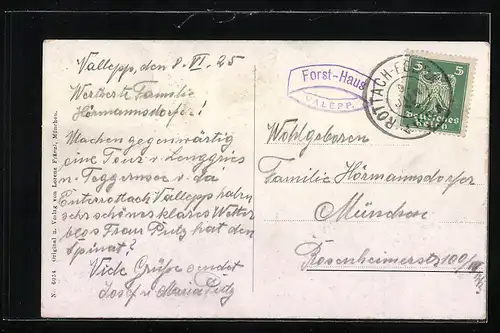 Vallepp, den 8. VI. 25
Werteste Familie
Hörmannsdorfer!
Machen gegenwärtig
eine Tour v. Lenggries
n. Teggernsee v. da
Enterrottach Vallepp haben
sehr schönes klares Wetter
blos Frau Putz hat den
Spinat?
Viele Grüße sendet
Josef u. Maria Putz
N. 6034 Original u. Verlag von Lorenz Fränzl, München.
Forst-Haus
VALEPP.
ROTTACH
5 5
Deutsches
Reich
Wohlgeboren
Familie Hörmannsdorfer
München
Rosenheimerstr 100/III